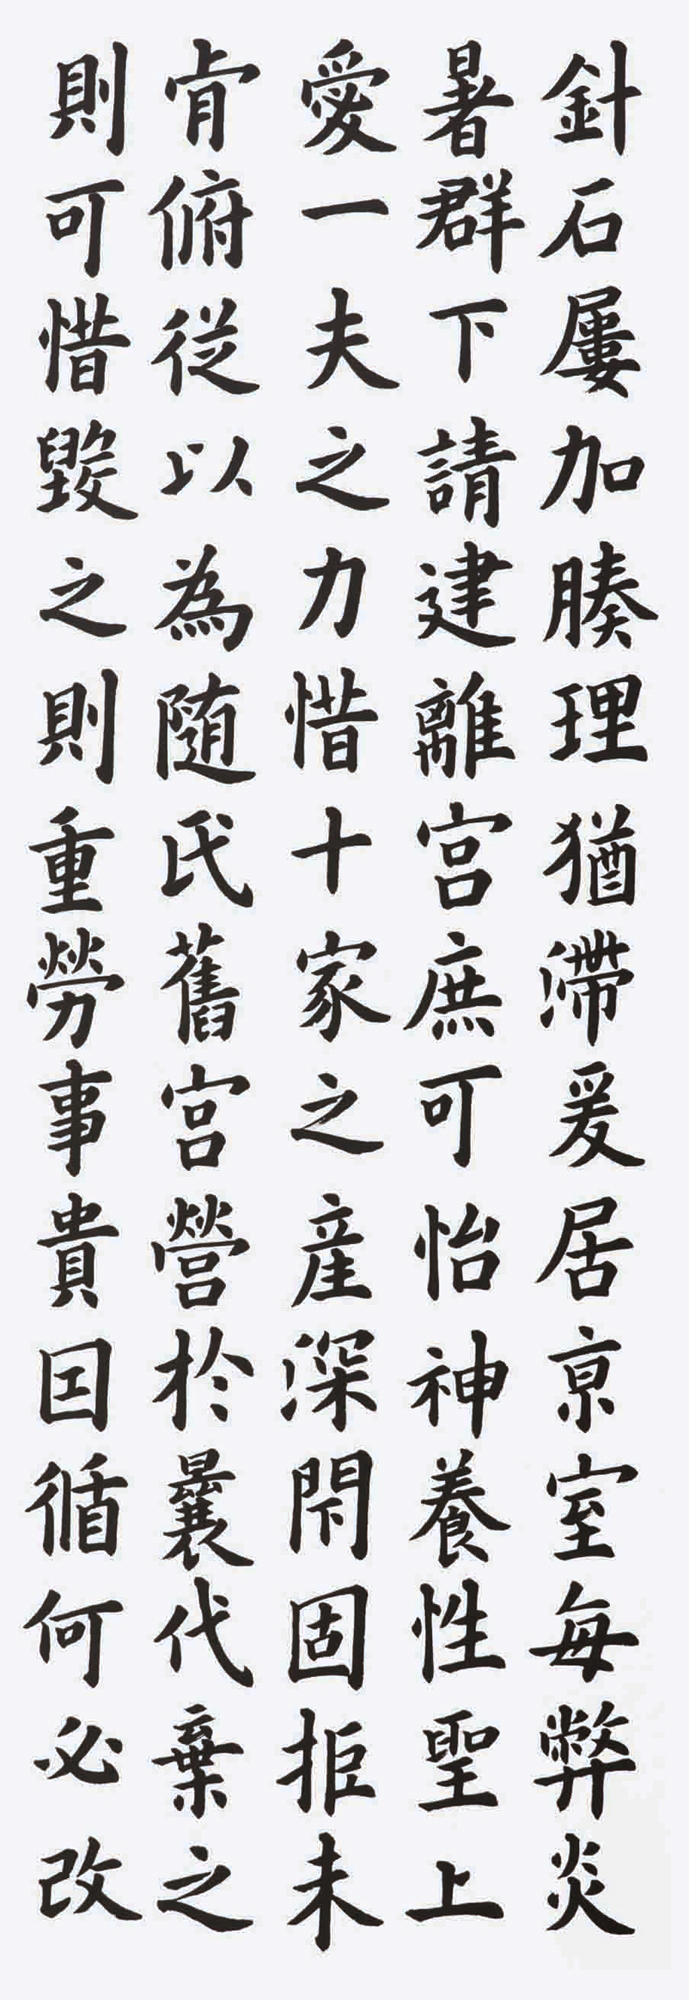 針石屢加腠理猶滯爰居京室每弊炎
暑群下請建離宮庶可怡神養性聖上
愛一夫之力惜十家之產深閇固拒未
肯俯從以為随氏舊宮營於曩代棄之
則可惜毀之則重勞事貴因循何必改